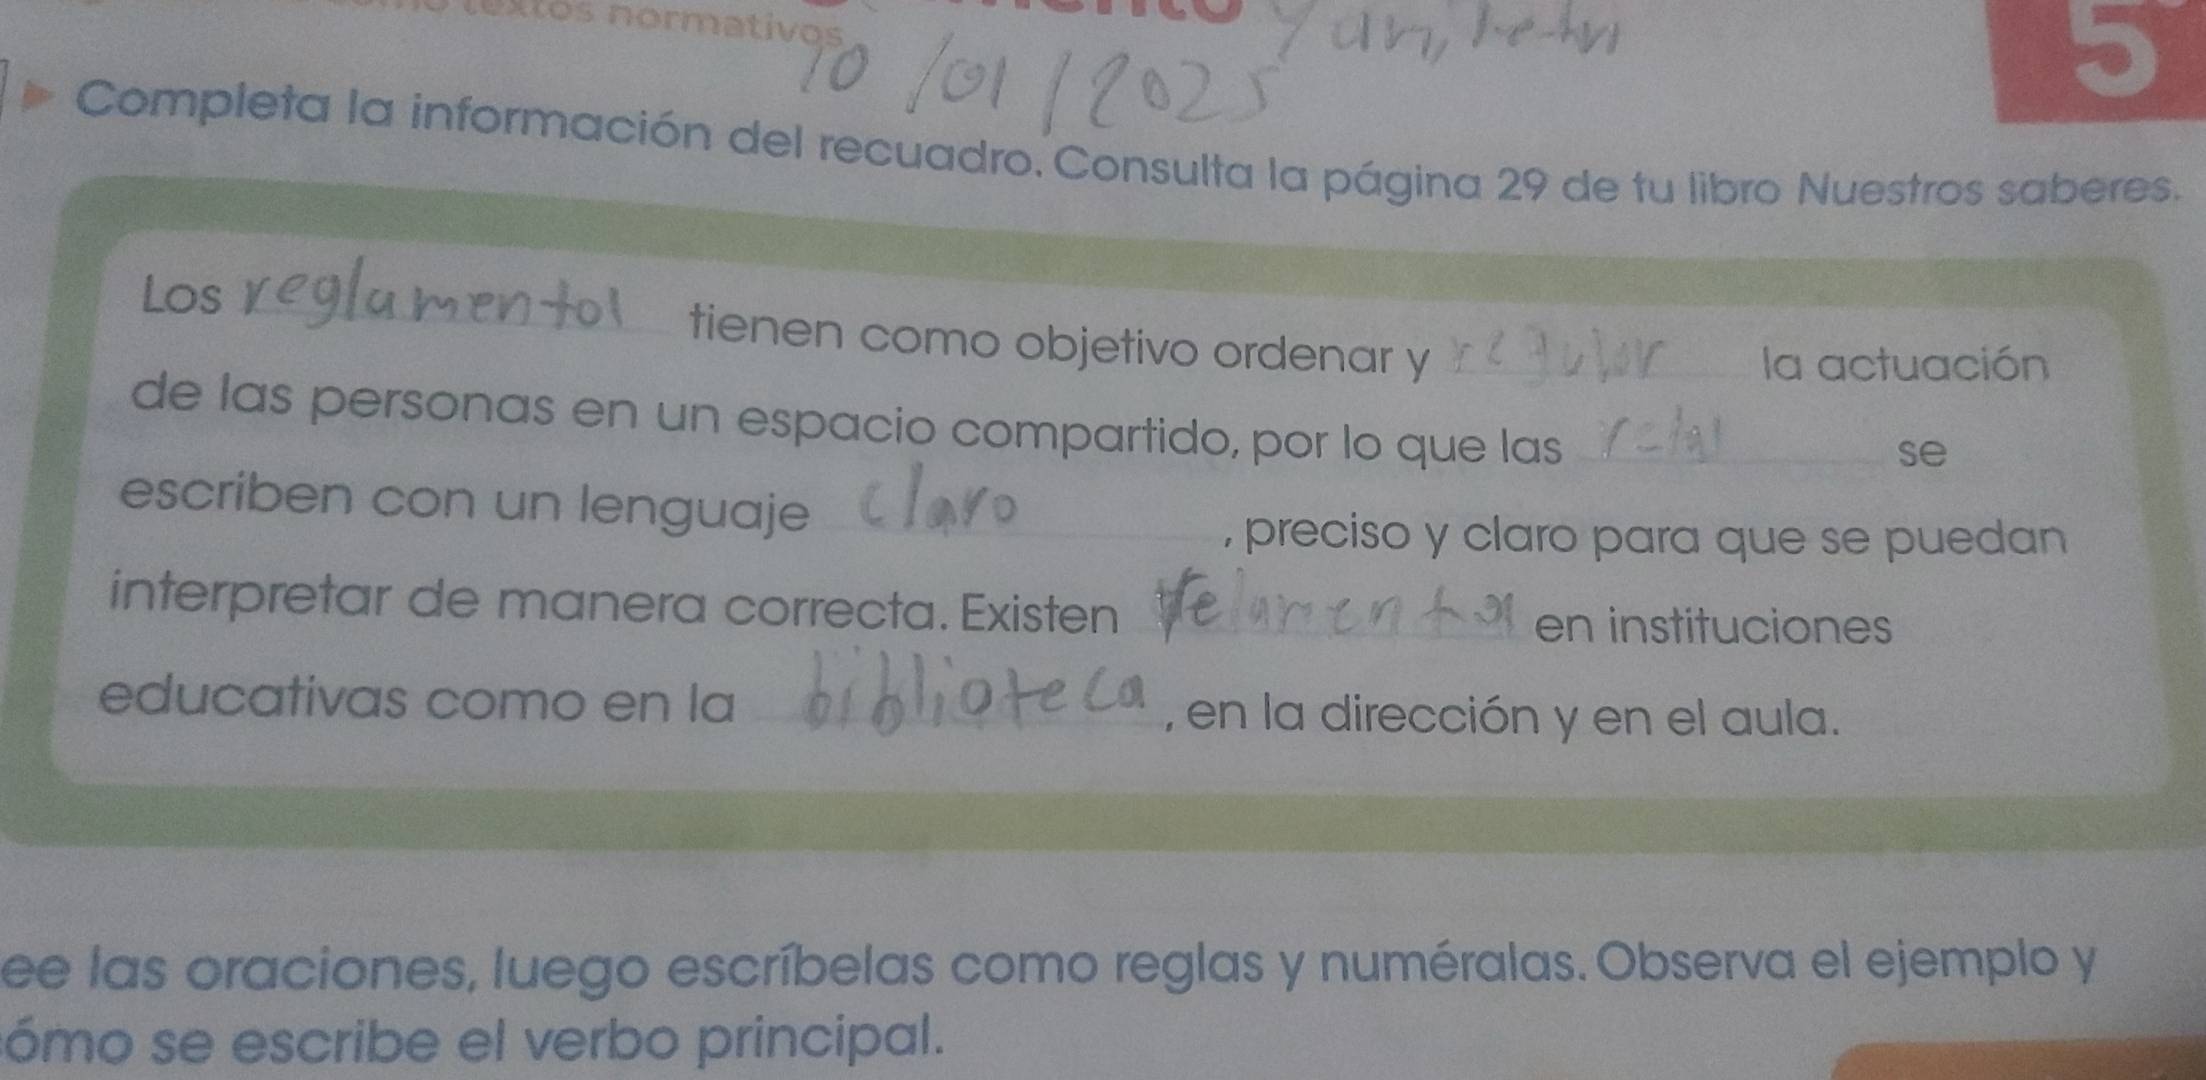 textos normativos
10/01/2025
5
Completa la información del recuadro. Consulta la página 29 de tu libro Nuestros saberes.
Los reglamentol tienen como objetivo ordenar y regulor la actuación
de las personas en un espacio compartido, por lo que las se
escriben con un lenguaje claro, preciso y claro para que se puedan
interpretar de manera correcta. Existen relamentol en instituciones
educativas como en la biblioteca, en la dirección y en el aula.
ee las oraciones, luego escríbelas como reglas y numéralas. Observa el ejemplo y
ómo se escribe el verbo principal.